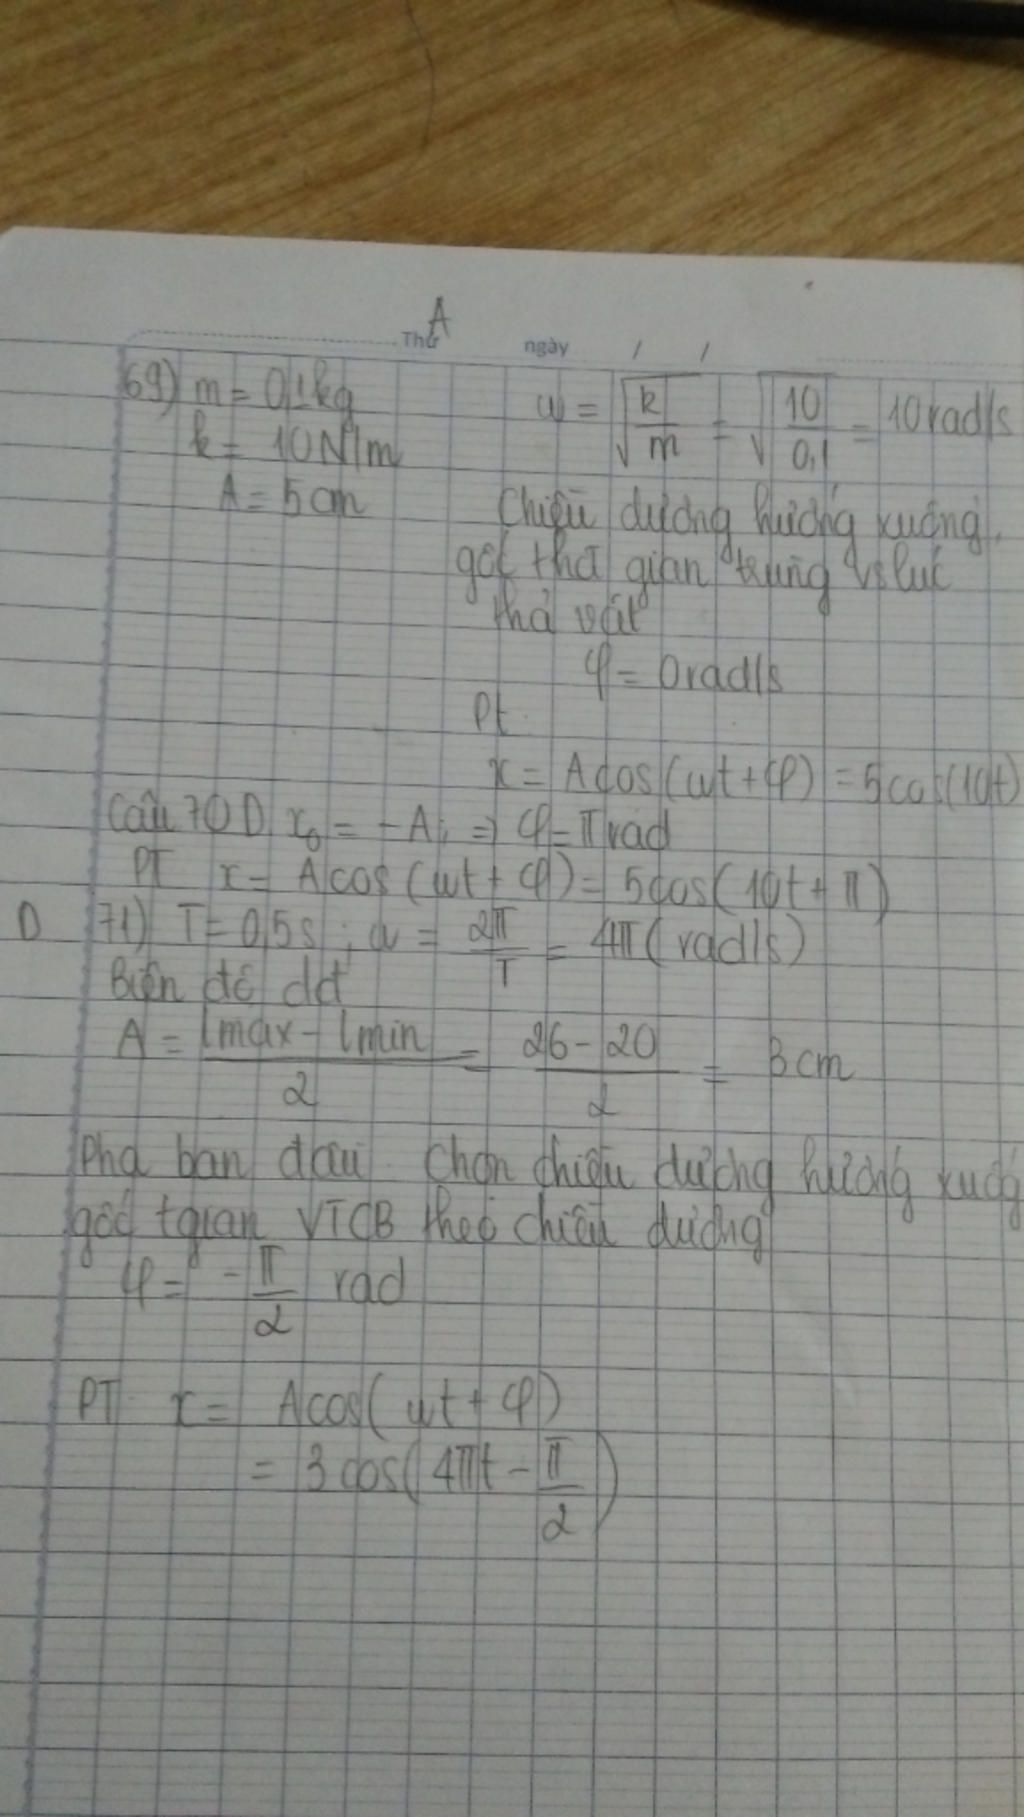 A
Thứ ngày / /
69) m = 0,1kg
k = 10N/m
A = 5cm
ω = √k/m = √10/0,1 = 10rad/s
Chiều dương hướng xuống,
gốc thời gian trùng vs lúc
thả vật
φ = 0rad/s
Pt
x = Acos(ωt + φ) = 5cos(10t)
Câu 70 D x₀ = -A, => φ = π rad
PT x = Acos(ωt + φ) = 5cos(10t + π)
D 71) T = 0,5s; ω = 2π/T = 4π(rad/s)
Biên độ dđ
A = lmax - lmin/2 = 26 - 20/2 = 3cm
Pha ban đầu. Chọn chiều dương hướng xuống
gốc tgian VTCB theo chiều dương
φ = -π/2 rad
PT x = Acos(ωt + φ)
= 3cos(4πt - π/2)